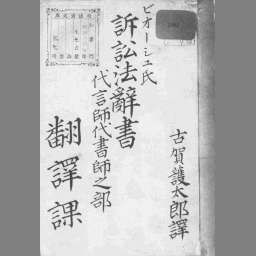 ビオーシュ氏
訴訟法辭書
代言師代書師之部
古賀護太郎譯
翻譯課